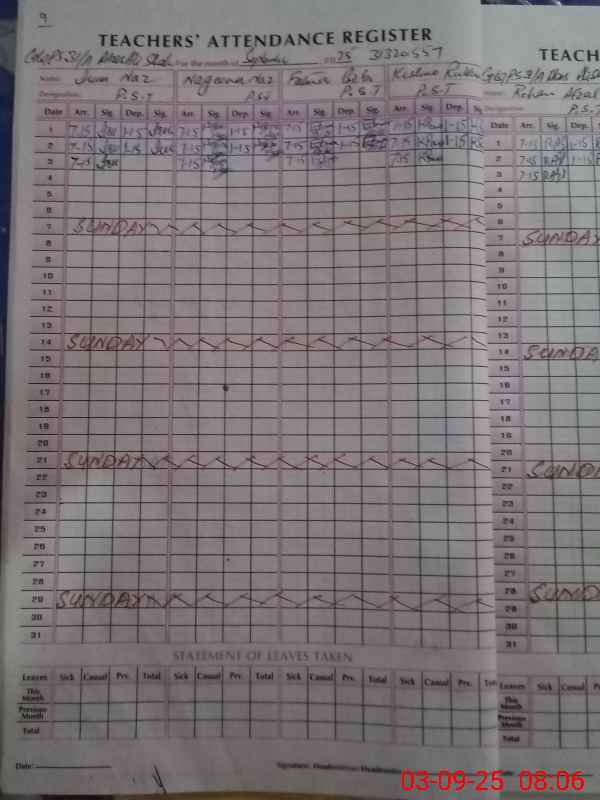 9
TEACHERS' ATTENDANCE REGISTER
For the month of September 2025 31320557
Name: Naz Nageena Naz
Designation: P.S.T P.S.T P.S.T P.S.T
Date Arr. Sig. Dep. Sig. Arr. Sig. Dep. Sig. Arr. Sig. Dep. Sig. Arr. Sig. Dep.
1 7-15 1-15 7-15 1-15 7-15 1-15 7-15 1-15
2 7-15 1-15 7-15 1-15 7-15 1-15 7-15 1-15
3 7-15 7-15 7-15 7-15
4
5
6
7 SUNDAY
8
9
10
11
12
13
14 SUNDAY
15
16
17
18
19
20
21 SUNDAY
22
23
24
25
26
27
28
29 SUNDAY
30
31
STATEMENT OF LEAVES TAKEN
Leaves Sick Casual Prv. Total Sick Casual Prv. Total Sick Casual Prv. Total Sick Casual Prv.
This Month
Previous Month
Total
Date:
Signature:
TEACH
Name: Rehan Afzal
Designation: P.S.T
Date Arr. Sig. Dep.
1 7-15 1-15
2 7-15 1-15
3 7-15
4
5
6
7 SUNDAY
8
9
10
11
12
13
14 SUNDA
15
16
17
18
19
20
21 SUND
22
23
24
25
26
27
28 SUND
29
30
31
Leaves Sick Casual
This Month
Previous Month
Total
Date:
03-09-25 08:06